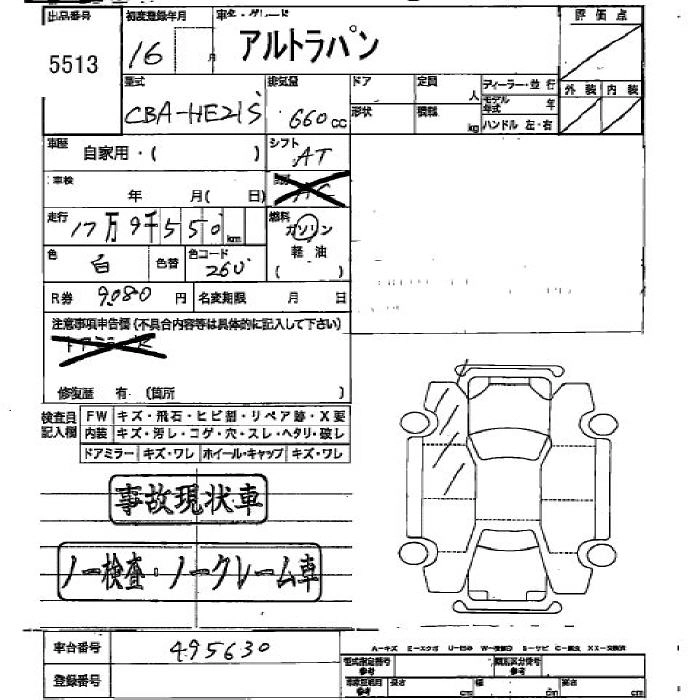 出品番号 初度登録年月 車名・グレード 評価点
5513 16 月 アルトラパン
型式 排気量 ドア 定員 人 ディーラー・並行 外装 内装
CBA-HE21S 660cc 形状 積載 kg モデル年式 年
ハンドル 左・右
車歴 自家用・( ) シフト AT
車検 年 月( 日)
走行 17万9千550km 燃料 ガソリン
軽油
( )
色 白 色替 色コード 26U
R券 9,080 円 名変期限 月 日
注意事項申告欄(不具合内容等は具体的に記入して下さい)
修復歴 有 (箇所 )
検査員 FW キズ・飛石・ヒビ割・リペア跡・X要
記入欄 内装 キズ・汚レ・コゲ・穴・スレ・ヘタリ・破レ
ドアミラー キズ・ワレ ホイール・キャップ キズ・ワレ
事故現状車
ノー検査・ノークレーム車
車台番号 495630
登録番号
型式指定番号 類別区分番号
参考 長さ cm 幅 cm 高さ cm